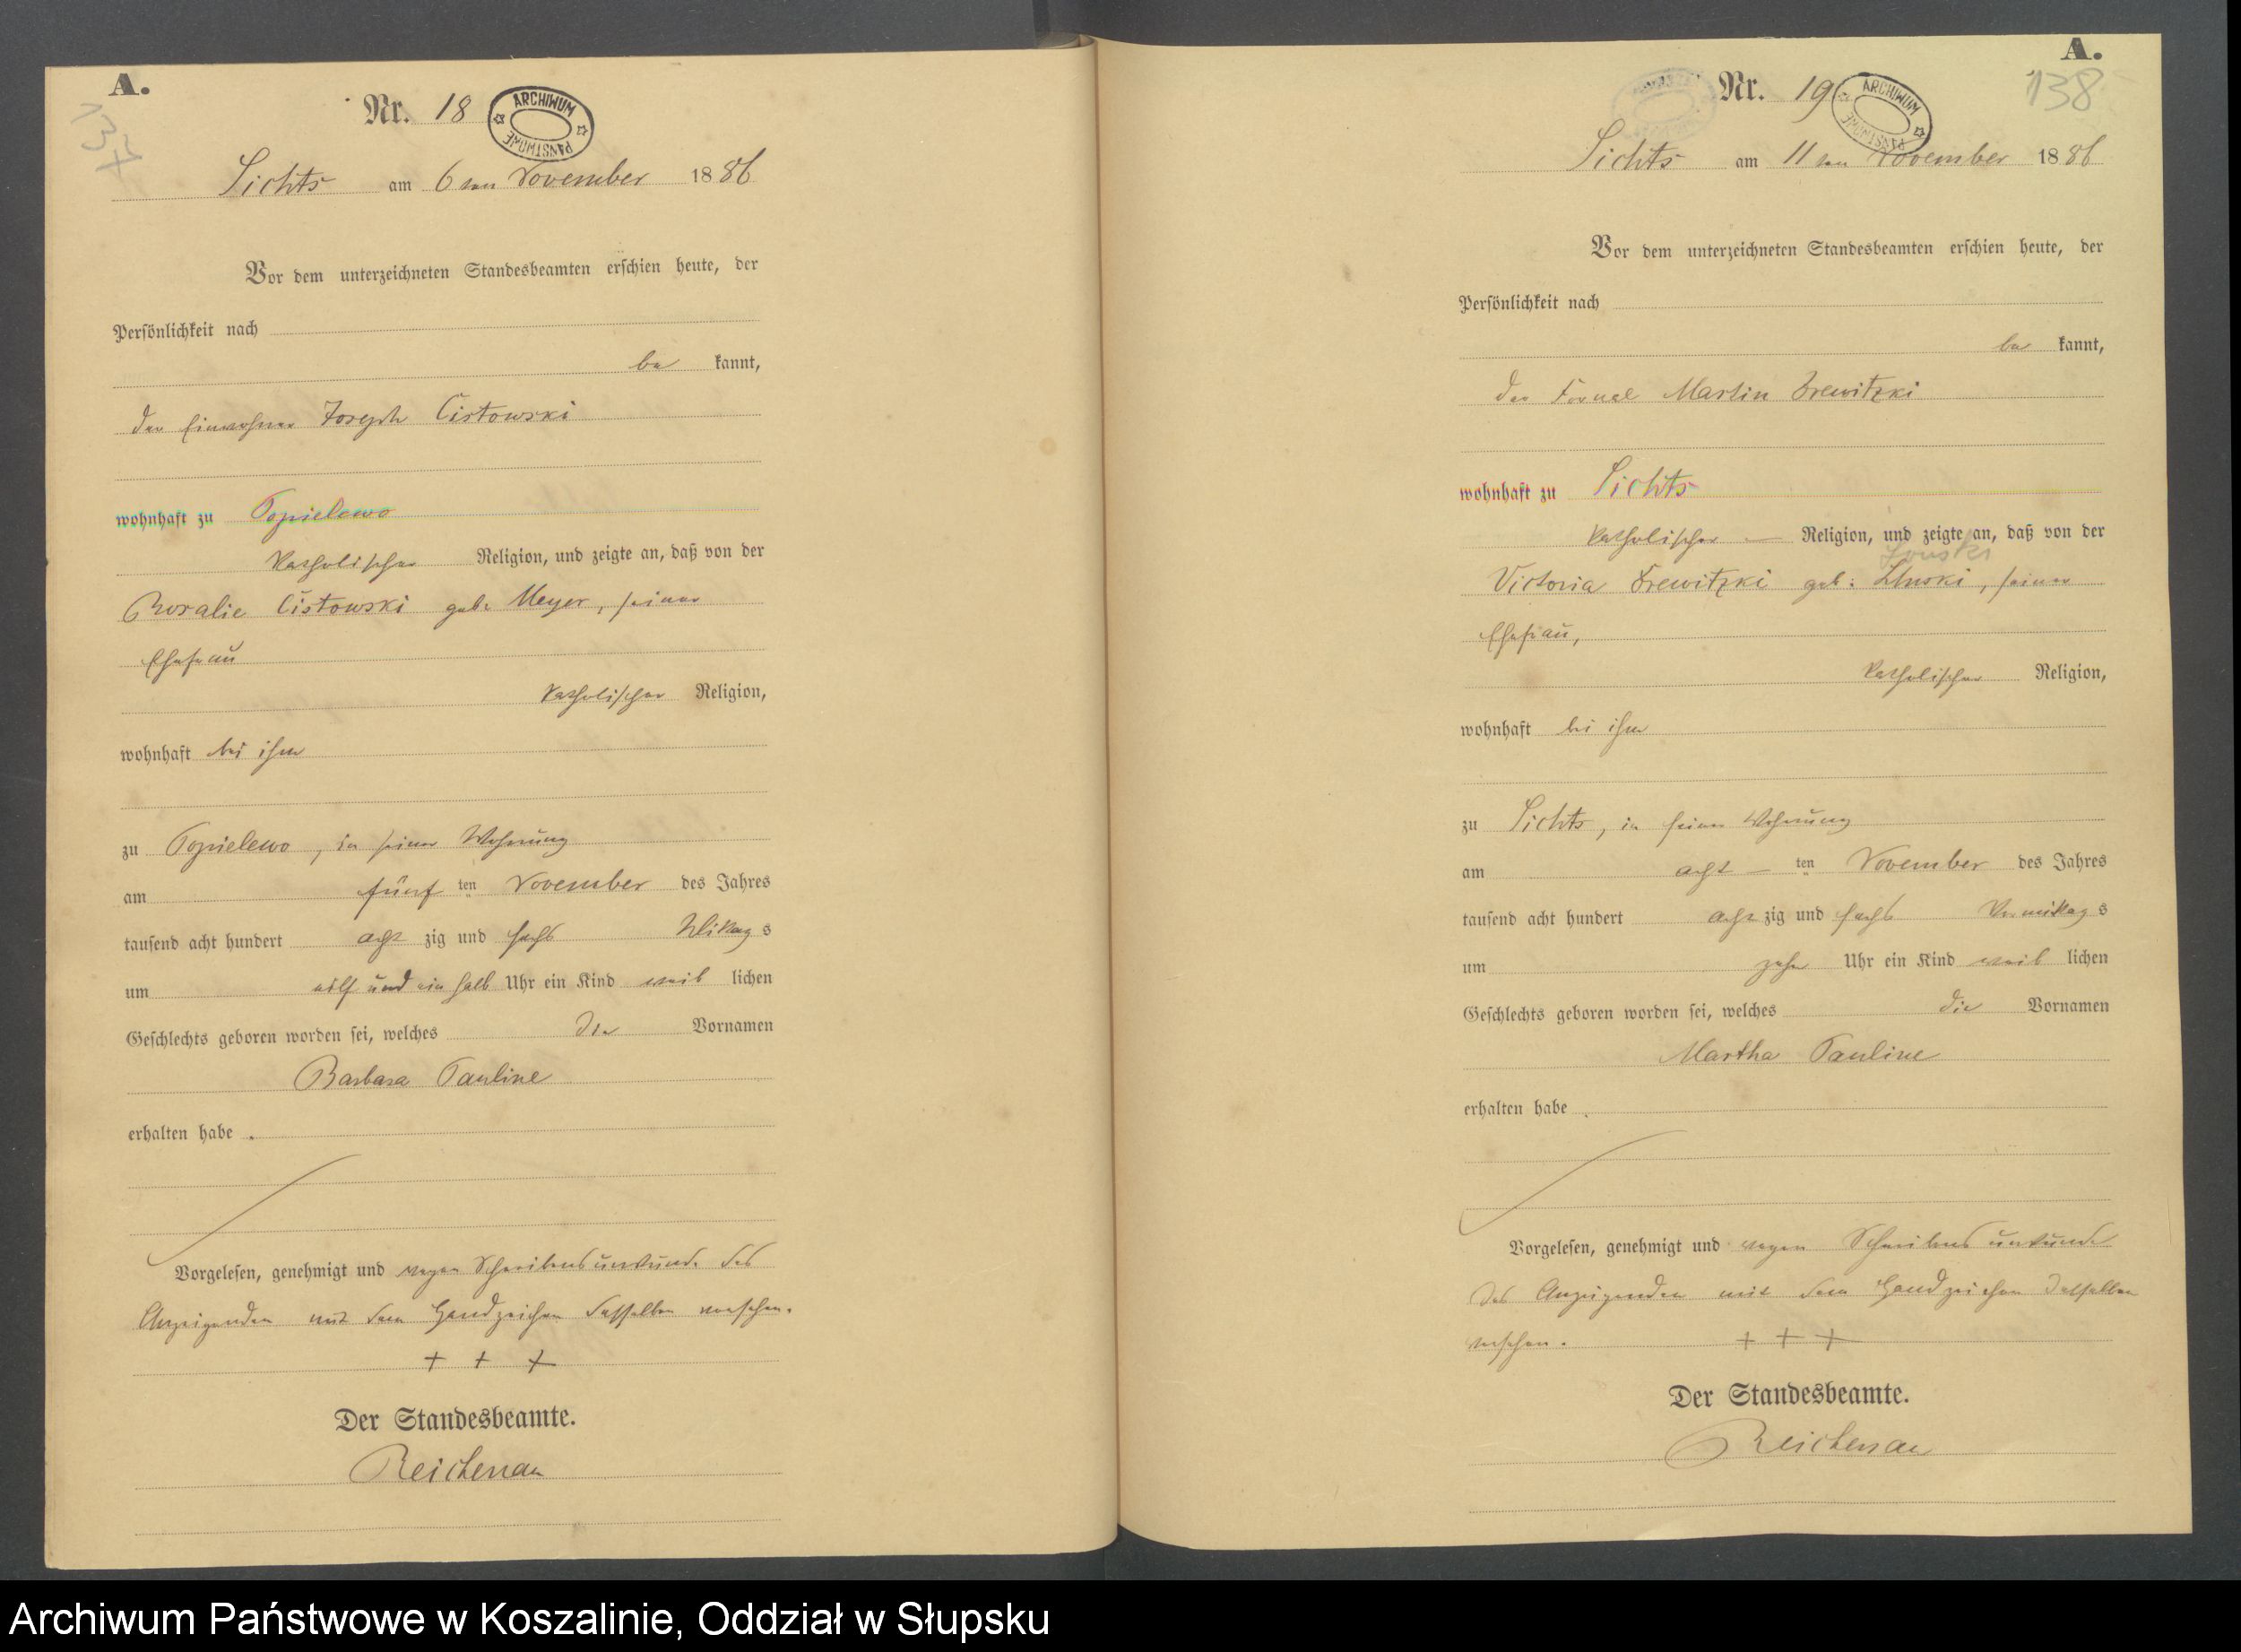 A.
137
Nr. 18
ARCHIWUM PAŃSTWOWE
Lichts am 6ten November 1886
Vor dem unterzeichneten Standesbeamten erschien heute, der
Persönlichkeit nach
be kannt,
der Einwohner Joseph Cistowski
wohnhaft zu Popielewo
katholischer Religion, und zeigte an, daß von der
Rosalie Cistowski geb. Meyer, seiner
Ehefrau
katholischer Religion,
wohnhaft bei ihm
zu Popielewo, in seiner Wohnung
am fünf ten November des Jahres
tausend acht hundert acht zig und sechs Mittag s
um und ein halb Uhr ein Kind weib lichen
Geschlechts geboren worden sei, welches die Vornamen
Barbara Pauline
erhalten habe.
Vorgelesen, genehmigt und wegen Schreibensunkunde des
Anzeigenden mit dem Handzeichen desselben versehen.
+ + +
Der Standesbeamte.
Reichenau
A.
138
Nr. 19
ARCHIWUM PAŃSTWOWE
Lichts am 11ten November 1886
Vor dem unterzeichneten Standesbeamten erschien heute, der
Persönlichkeit nach
be kannt,
der Martin Drewitzki
wohnhaft zu Lichts
katholischer — Religion, und zeigte an, daß von der
Victoria Drewitzki geb: seiner
Ehefrau,
katholischer Religion,
wohnhaft bei ihm
zu Lichts, in seiner Wohnung
am acht — ten November des Jahres
tausend acht hundert acht zig und sechs Vormittag s
um zehn Uhr ein Kind weib lichen
Geschlechts geboren worden sei, welches die Vornamen
Martha Pauline
erhalten habe.
Vorgelesen, genehmigt und wegen Schreibensunkunde
des Anzeigenden mit dem Handzeichen desselben
versehen. + + +
Der Standesbeamte.
Reichenau
Archiwum Państwowe w Koszalinie, Oddział w Słupsku